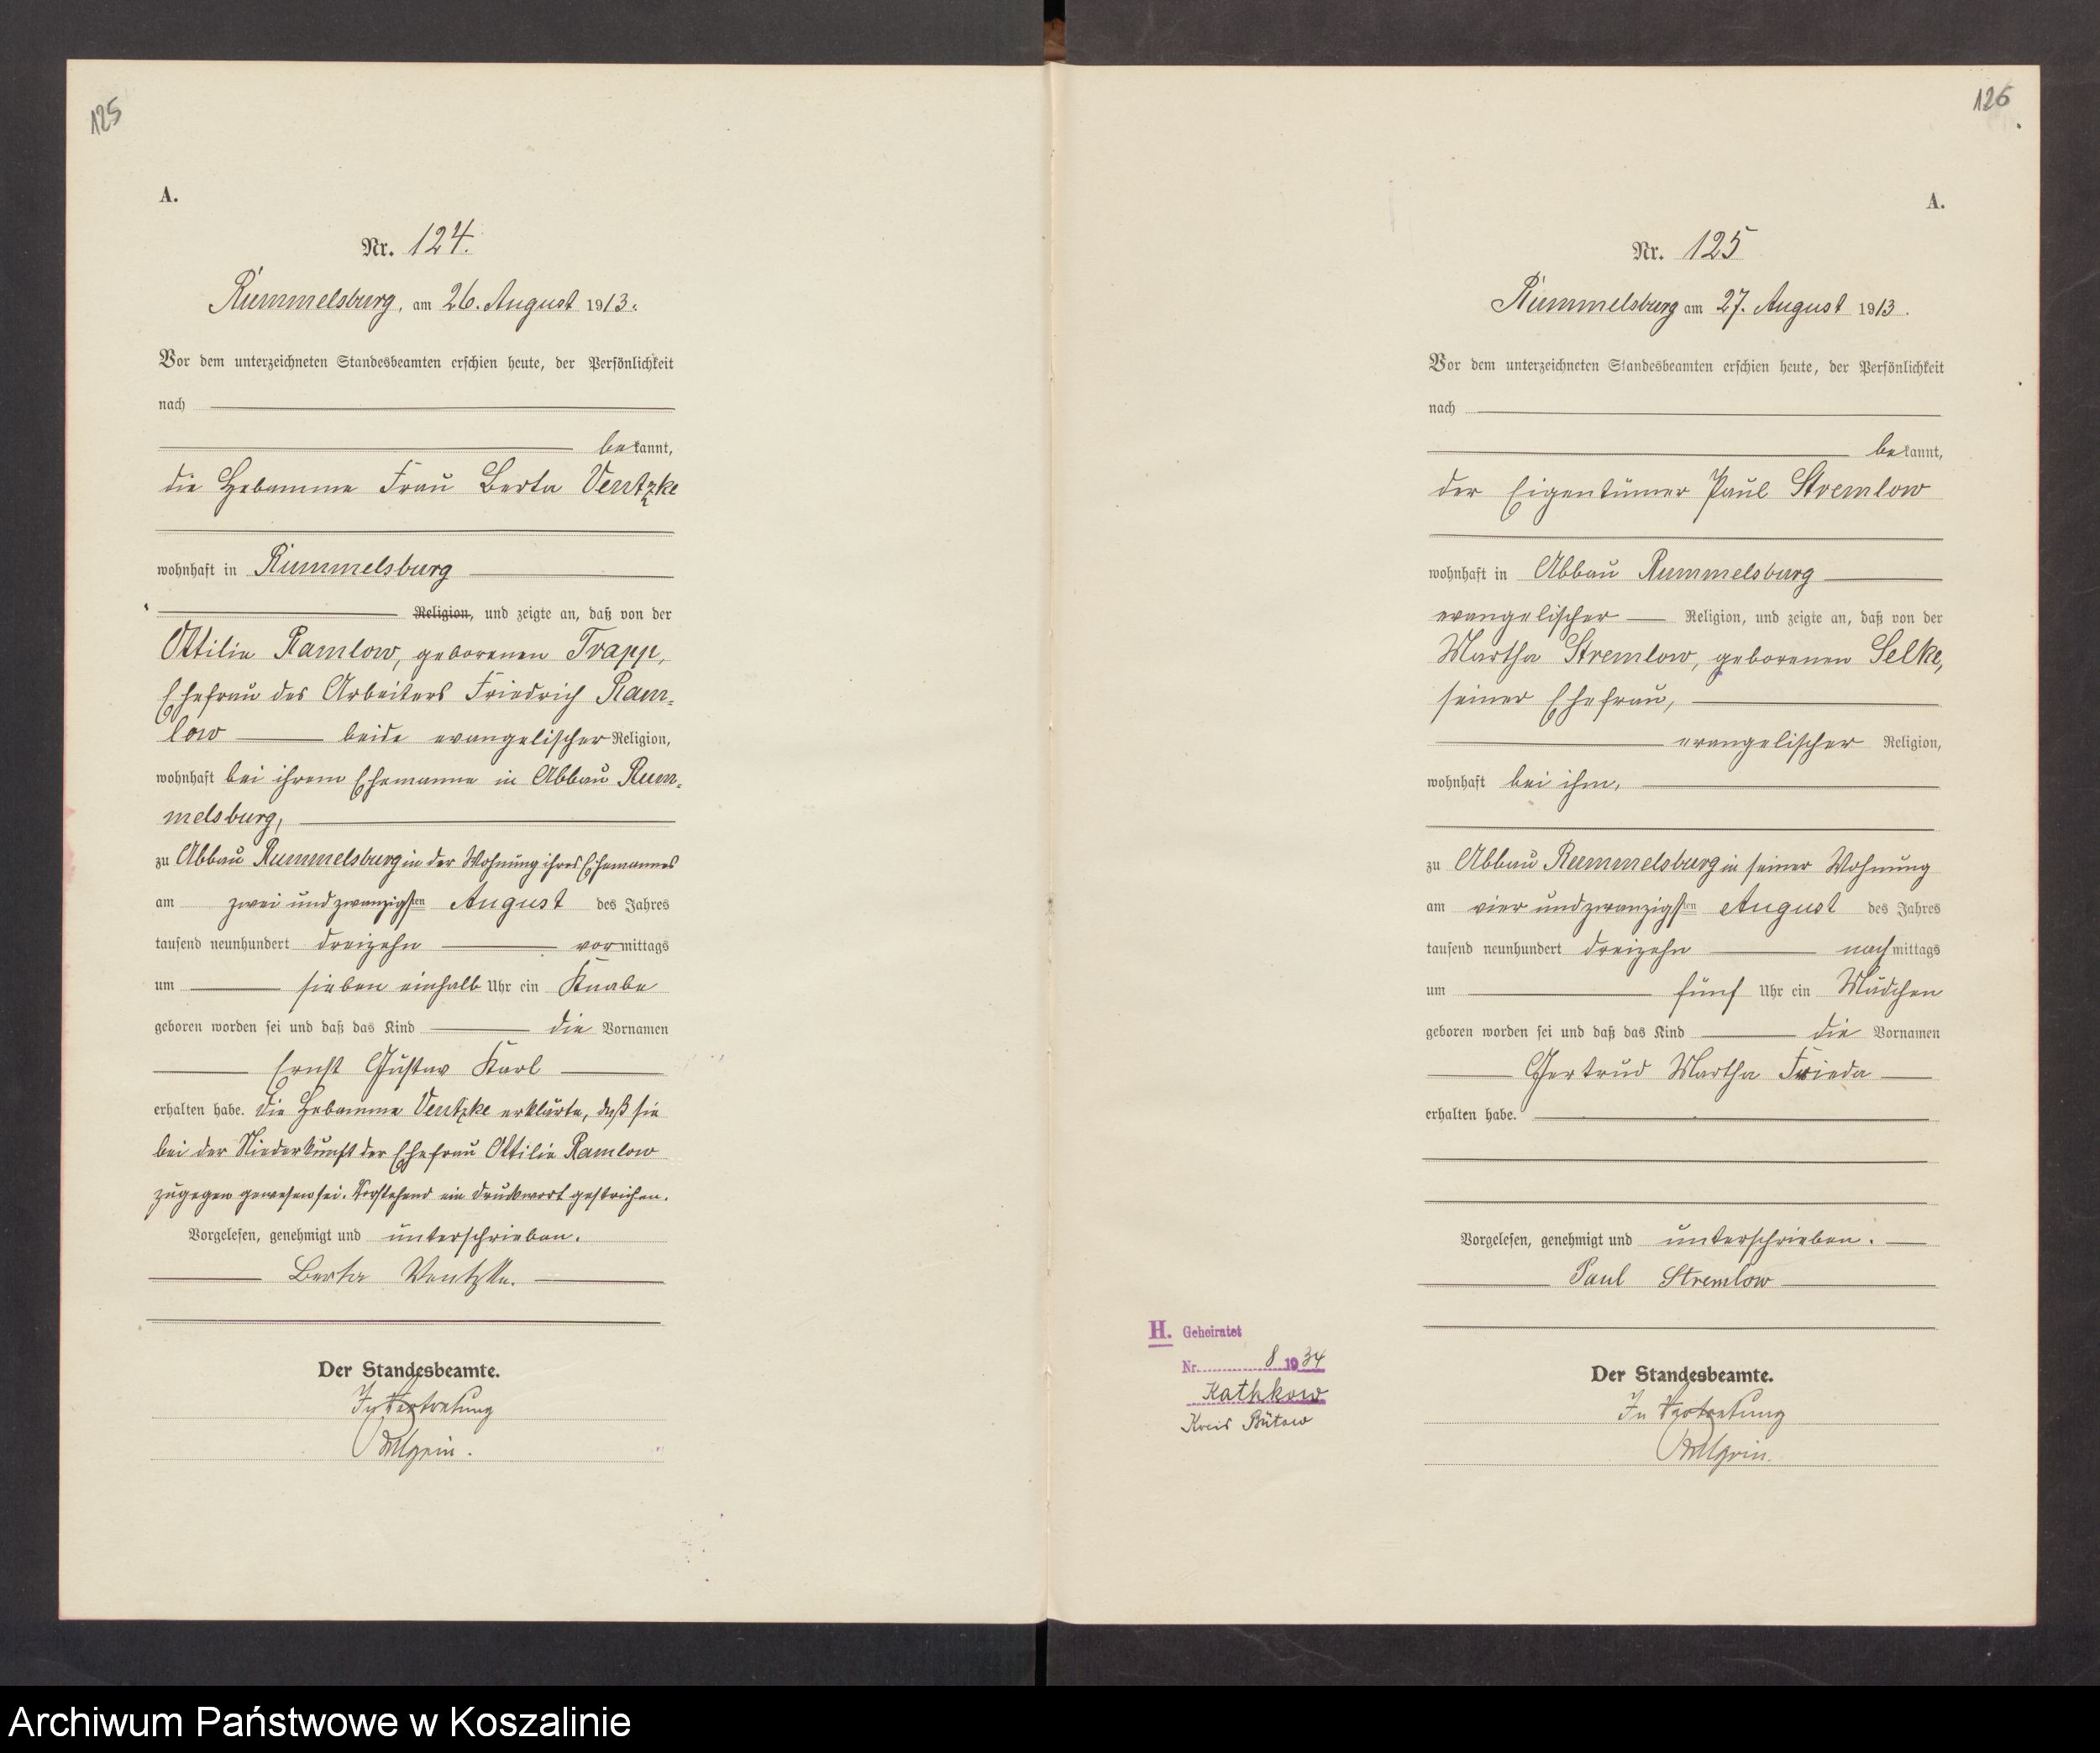 125
A.
Nr. 124.
Rummelsburg, am 26. August 1913.
Vor dem unterzeichneten Standesbeamten erschien heute, der Persönlichkeit
nach
bekannt,
die Hebamme Frau Berta Ventzke
wohnhaft in Rummelsburg
Religion, und zeigte an, daß von der
Ottilie Ramlow, geborenen Trapp,
Ehefrau des Arbeiters Friedrich Ram-
low beide evangelischer Religion,
wohnhaft bei ihrem Ehemanne in Abbau Rum-
melsburg,
zu Abbau Rummelsburg in der Wohnung ihres Ehemannes
am zwei und zwanzigsten August des Jahres
tausend neunhundert dreizehn vormittags
um sieben einhalb Uhr ein Knabe
geboren worden sei und daß das Kind die Vornamen
Ernst Gustav Karl
erhalten habe. Die Hebamme Ventzke erklärte, daß sie
bei der Niederkunft der Ehefrau Ottilie Ramlow
zugegen gewesen sei. Vorstehend ein Druckwort gestrichen.
Vorgelesen, genehmigt und unterschrieben.
Berta Ventzke.
Der Standesbeamte.
In Vertretung
126
A.
Nr. 125
Rummelsburg am 27. August 1913.
Vor dem unterzeichneten Standesbeamten erschien heute, der Persönlichkeit
nach
bekannt,
der Eigentümer Paul Stremlow
wohnhaft in Abbau Rummelsburg
evangelischer Religion, und zeigte an, daß von der
Martha Stremlow, geborenen Selke,
seiner Ehefrau,
evangelischer Religion,
wohnhaft bei ihm,
zu Abbau Rummelsburg in seiner Wohnung
am vier und zwanzigsten August des Jahres
tausend neunhundert dreizehn nachmittags
um fünf Uhr ein Mädchen
geboren worden sei und daß das Kind die Vornamen
Gertrud Martha Frieda
erhalten habe.
Vorgelesen, genehmigt und unterschrieben.
Paul Stremlow
H. Geheiratet
Nr. 8 1934
Kathkow
Kreis Bütow
Der Standesbeamte.
In Vertretung
Archiwum Państwowe w Koszalinie